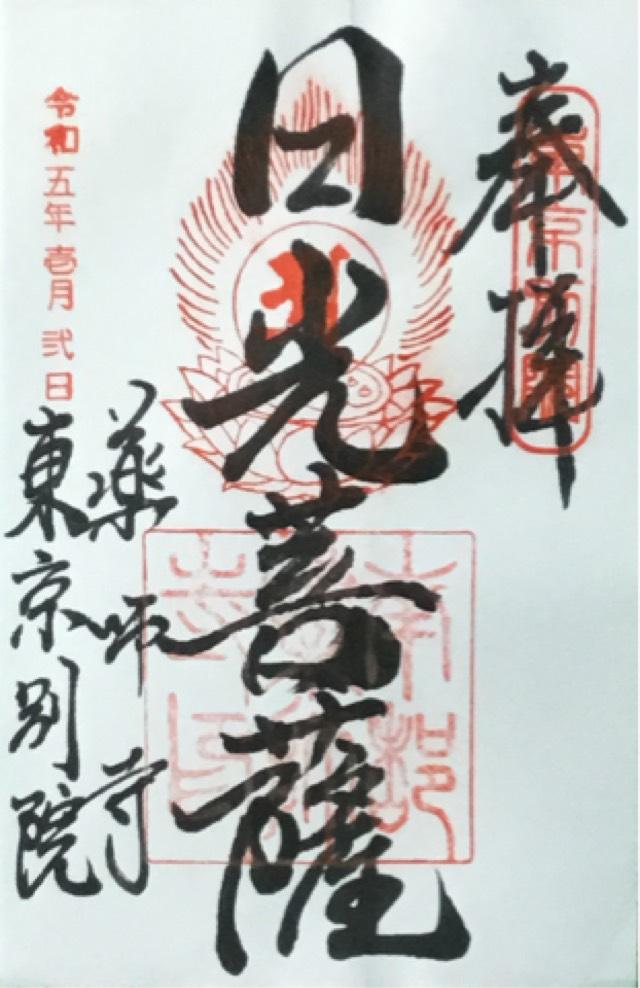 奉拝
日光菩薩
薬師寺
東京別院
令和五年壱月弐日